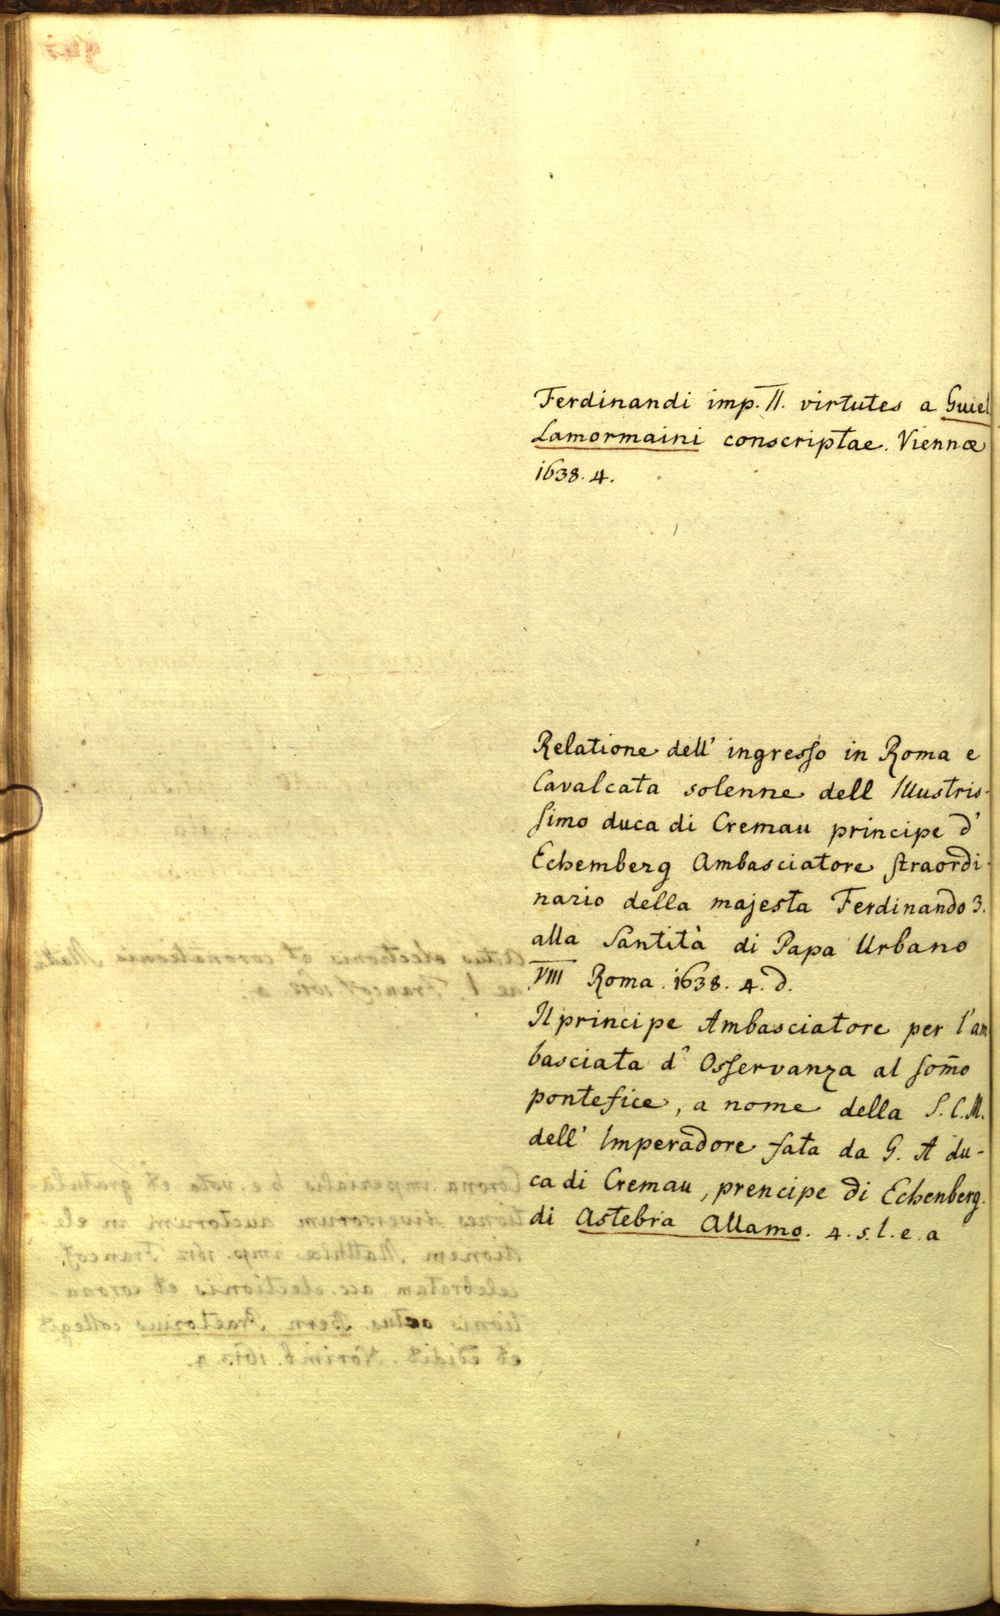 Ferdinandi imp. II. virtutes a Guiel
Lamormaini conscriptae. Viennæ
1638. 4.
Relatione dell' ingresso in Roma e
Cavalcata solenne dell Illustris-
simo duca di Cremau principe d'
Echemberg Ambasciatore straordi-
nario della majesta Ferdinando 3.
alla Santità di Papa Urbano
VIII Roma. 1638. 4. d.
Il principe Ambasciatore per l'am
basciata d' Osservanza al som̄o
pontefice, a nome della S. C. M.
dell' Imperadore fata da G. A du-
ca di Cremau, prencipe di Echenberg.
di Astebria Allamo. 4. s. l. e. a